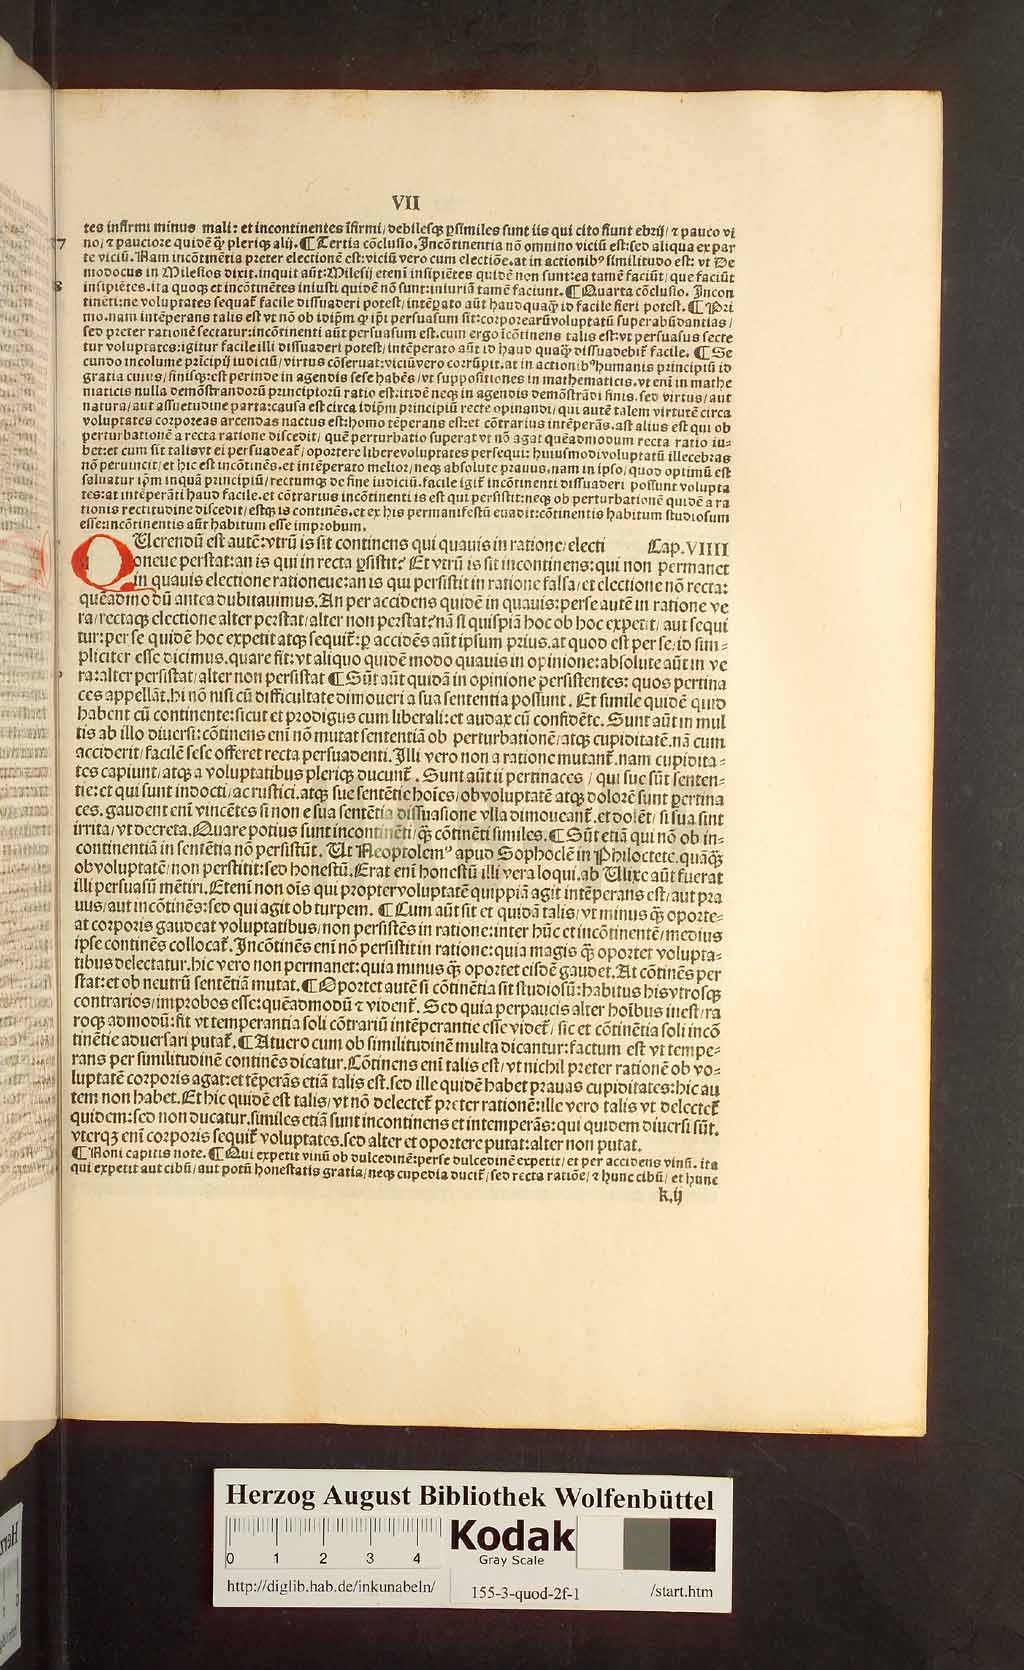 VII
tes infirmi minus mali: et incontinentes ĩfirmi/ debilesqꝫ ꝑsimiles sunt iis qui cito fiunt ebrij/ ⁊ pauco vi
7 no/ ⁊ pauciore quidẽ q̃ꝫ pleriqꝫ alij. ¶ Tertia cõclusio. Incõtinentia nõ omnino viciũ est: sed aliqua ex par
te viciũ. Nam incõtinẽtia preter electionẽ est: viciũ vero cum electiõe. at in actionibꝰ similitudo est: vt De
modocus in Milesios dixit. inquit aũt: Milesij etenĩ insipiẽtes quidẽ non sunt: ea tamẽ faciũt/ que faciũt
8 insipiẽtes. ita quoqꝫ et incõtinẽtes iniusti quidẽ nõ sunt: iniuriã tamẽ faciunt. ¶ Quarta cõclusio. Incon
tinẽti: ne voluptates sequat᷑ facile dissuaderi potest/ intẽꝑato aũt haudquaq̃ꝫ id facile fieri potest. ¶ Pri
mo. nam intẽperans talis est vt nõ ob idip̃m qꝫ ip̃i persuasum sit: corporearũ voluptatũ superabũdantias/
sed preter rationẽ sectatur: incõtinenti aũt persuasum est. cum ergo ĩcõtinens talis est: vt persuasus secte
tur voluptates: igitur facile illi dissuaderi potest/ intẽperato aũt id haud quaq̃ꝫ dissuadebit᷑ facile. ¶ Se
cundo incolume prĩcipij iudiciũ/ virtus cõseruat: viciũ vero corrũpit. at in actionibꝰ humanis principiũ id
gratia cuius/ finisqꝫ: est perinde in agendis sese habẽs/ vt suppositiones in mathematicis. vt enĩ in mathe
maticis nulla demõstrandorũ principiorũ ratio est: itidẽ neqꝫ in agendis demõstrãdi finis. sed virtus/ aut
natura/ aut assuetudine parta: causa est circa idip̃m principiũ recte opinandi/ qui autẽ talem virtutẽ circa
voluptates corporeas arcendas nactus est: homo tẽperans est: et cõtrarius intẽperãs. ast alius est qui ob
perturbationẽ a recta ratione discedit/ quẽ perturbatio superat vt nõ agat quẽadmodum recta ratio iu⸗
bet: et cum sit talis vt ei persuadeat᷑/ oportere libere voluptates persequi: huiusmodi voluptatũ illecebras
nõ peruincit/ et hic est incõtinẽs. et intẽperato melior/ neqꝫ absolute prauus. nam in ipso/ quod optimũ est
saluatur ip̃m inquã principiũ/ rectumqꝫ de fine iudiciũ. facile igit᷑ incõtinenti dissuaderi possunt volupta
tes: at intẽperãti haud facile. et cõtrarius incõtinenti is est qui persistit: neqꝫ ob perturbationẽ quidẽ a ra
tionis rectitudine discedit/ estqꝫ is continẽs. et ex his permanifestũ euadit: cõtinentis habitum studiosum
esse: incõtinentis aũt habitum esse improbum.
QUerendũ est autẽ: vtrũ is sit continens qui quauis in ratione/ electi Cap. VIIII
oneue perstat: an is qui in recta ꝑsistit? Et vtrũ is sit incontinens: qui non permanet
in quauis electione rationeue: an is qui persistit in ratione falsa/ et electione nõ recta:
quẽadmodũ antea dubitauimus. An per accidens quidẽ in quauis: per se autẽ in ratione ve
ra/ rectaqꝫ electione alter perstat/ alter non perstat? nã si quispiã hoc ob hoc expetit/ aut sequi
tur: per se quidẽ hoc expetit atqꝫ sequit᷑: ꝑ accidẽs aũt ipsum prius. at quod est per se: id sim⸗
pliciter esse dicimus. quare fit: vt aliquo quidẽ modo quauis in opinione: absolute aũt in ve
ra: alter persistat/ alter non persistat ¶ Sũt aũt quidã in opinione ꝑsistentes: quos pertina
ces appellãt. hi nõ nisi cũ difficultate dimoueri a sua sententia possunt. Et simile quidẽ quid
habent cũ continente: sicut et prodigus cum liberali: et audax cũ confidẽte. Sunt aũt in mul
tis ab illo diuersi: cõtinens enĩ nõ mutat sententiã ob perturbationẽ/ atqꝫ cupiditatẽ. nã cum
acciderit/ facilẽ sese offeret recta persuadenti. Illi vero non a ratione mutant᷑. nam cupidita⸗
tes capiunt/ atqꝫ a voluptatibus pleriqꝫ ducunt᷑. Sunt aũt ii pertinaces / qui sue sũt senten⸗
tie: et qui sunt indocti/ ac rustici. atqꝫ sue sentẽtie hoĩes/ ob voluptatẽ atqꝫ dolorẽ sunt pertina
ces. gaudent enĩ vincẽtes si non e sua sentẽtia dissuasione vlla dimoueant᷑. et dolẽt/ si sua sint
irrita/ vt decreta. Quare potius sunt incontinẽti/ q̃ꝫ cõtinẽti similes. ¶ Sũt etiã qui nõ ob in⸗
continentiã in sentẽtia nõ persistũt. Ut Neoptolemꝰ apud Sophoclẽ in Philoctete. quãqꝫ
ob voluptatẽ/ non perstitit: sed honestũ. Erat enĩ honestũ illi vera loqui. ab Ulixe aũt fuerat
illi persuasũ mẽtiri. Etenĩ non oĩs qui propter voluptatẽ quippiã agit intẽperans est/ aut pra
uus/ aut incõtinẽs: sed qui agit ob turpem. ¶ Cum aũt sit et quidã talis/ vt minus q̃ꝫ oporte⸗
at corporis gaudeat voluptatibus/ non persistẽs in ratione: inter hũc et incõtinentẽ/ medius
ipse continẽs collocat᷑. Incõtinẽs enĩ nõ persistit in ratione: quia magis q̃ꝫ oportet volupta⸗
tibus delectatur. hic vero non permanet: quia minus q̃ꝫ oportet eisdẽ gaudet. At cõtinẽs per
stat: et ob neutrũ sentẽtiã mutat. ¶ Oportet autẽ si cõtinẽtia sit studiosũ: habitus his vtrosqꝫ
contrarios/ improbos esse: quẽadmodũ ⁊ vident᷑. Sed quia perpaucis alter hoĩbus inest/ ra
roqꝫ admodũ: fit vt temperantia soli cõtrariũ intẽperantie esse videt᷑/ sic et cõtinẽtia soli incõ
tinẽtie aduersari putat᷑. ¶ At uero cum ob similitudinẽ multa dicantur: factum est vt tempe⸗
rans per similitudinẽ continẽs dicatur. Cõtinens enĩ talis est/ vt nichil preter rationẽ ob vo⸗
luptatẽ corporis agat: et tẽperãs etiã talis est. sed ille quidẽ habet prauas cupiditates: hic au
tem non habet. Et hic quidẽ est talis/ vt nõ delectet᷑ preter rationẽ: ille vero talis vt delectet᷑
quidem: sed non ducatur. similes etiã sunt incontinens et intemperãs: qui quidem diuersi sũt.
vterqꝫ enĩ corporis sequit᷑ voluptates. sed alter et oportere putat: alter non putat.
¶ Noni capitis note. ¶ Qui expetit vinũ ob dulcedinẽ: per se dulcedinẽ expetit/ et per accidens vinũ. ita
qui expetit aut cibũ/ aut potũ honestatis gratia/ neqꝫ cupedia ducit᷑/ sed recta ratiõe/ ⁊ hunc cibũ/ et hunc
k.ij
Herzog August Bibliothek Wolfenbüttel
0 1 2 3 4
Kodak
Gray Scale
http://diglib.hab.de/inkunabeln/ 155-3-quod-2f-1 /start.htm